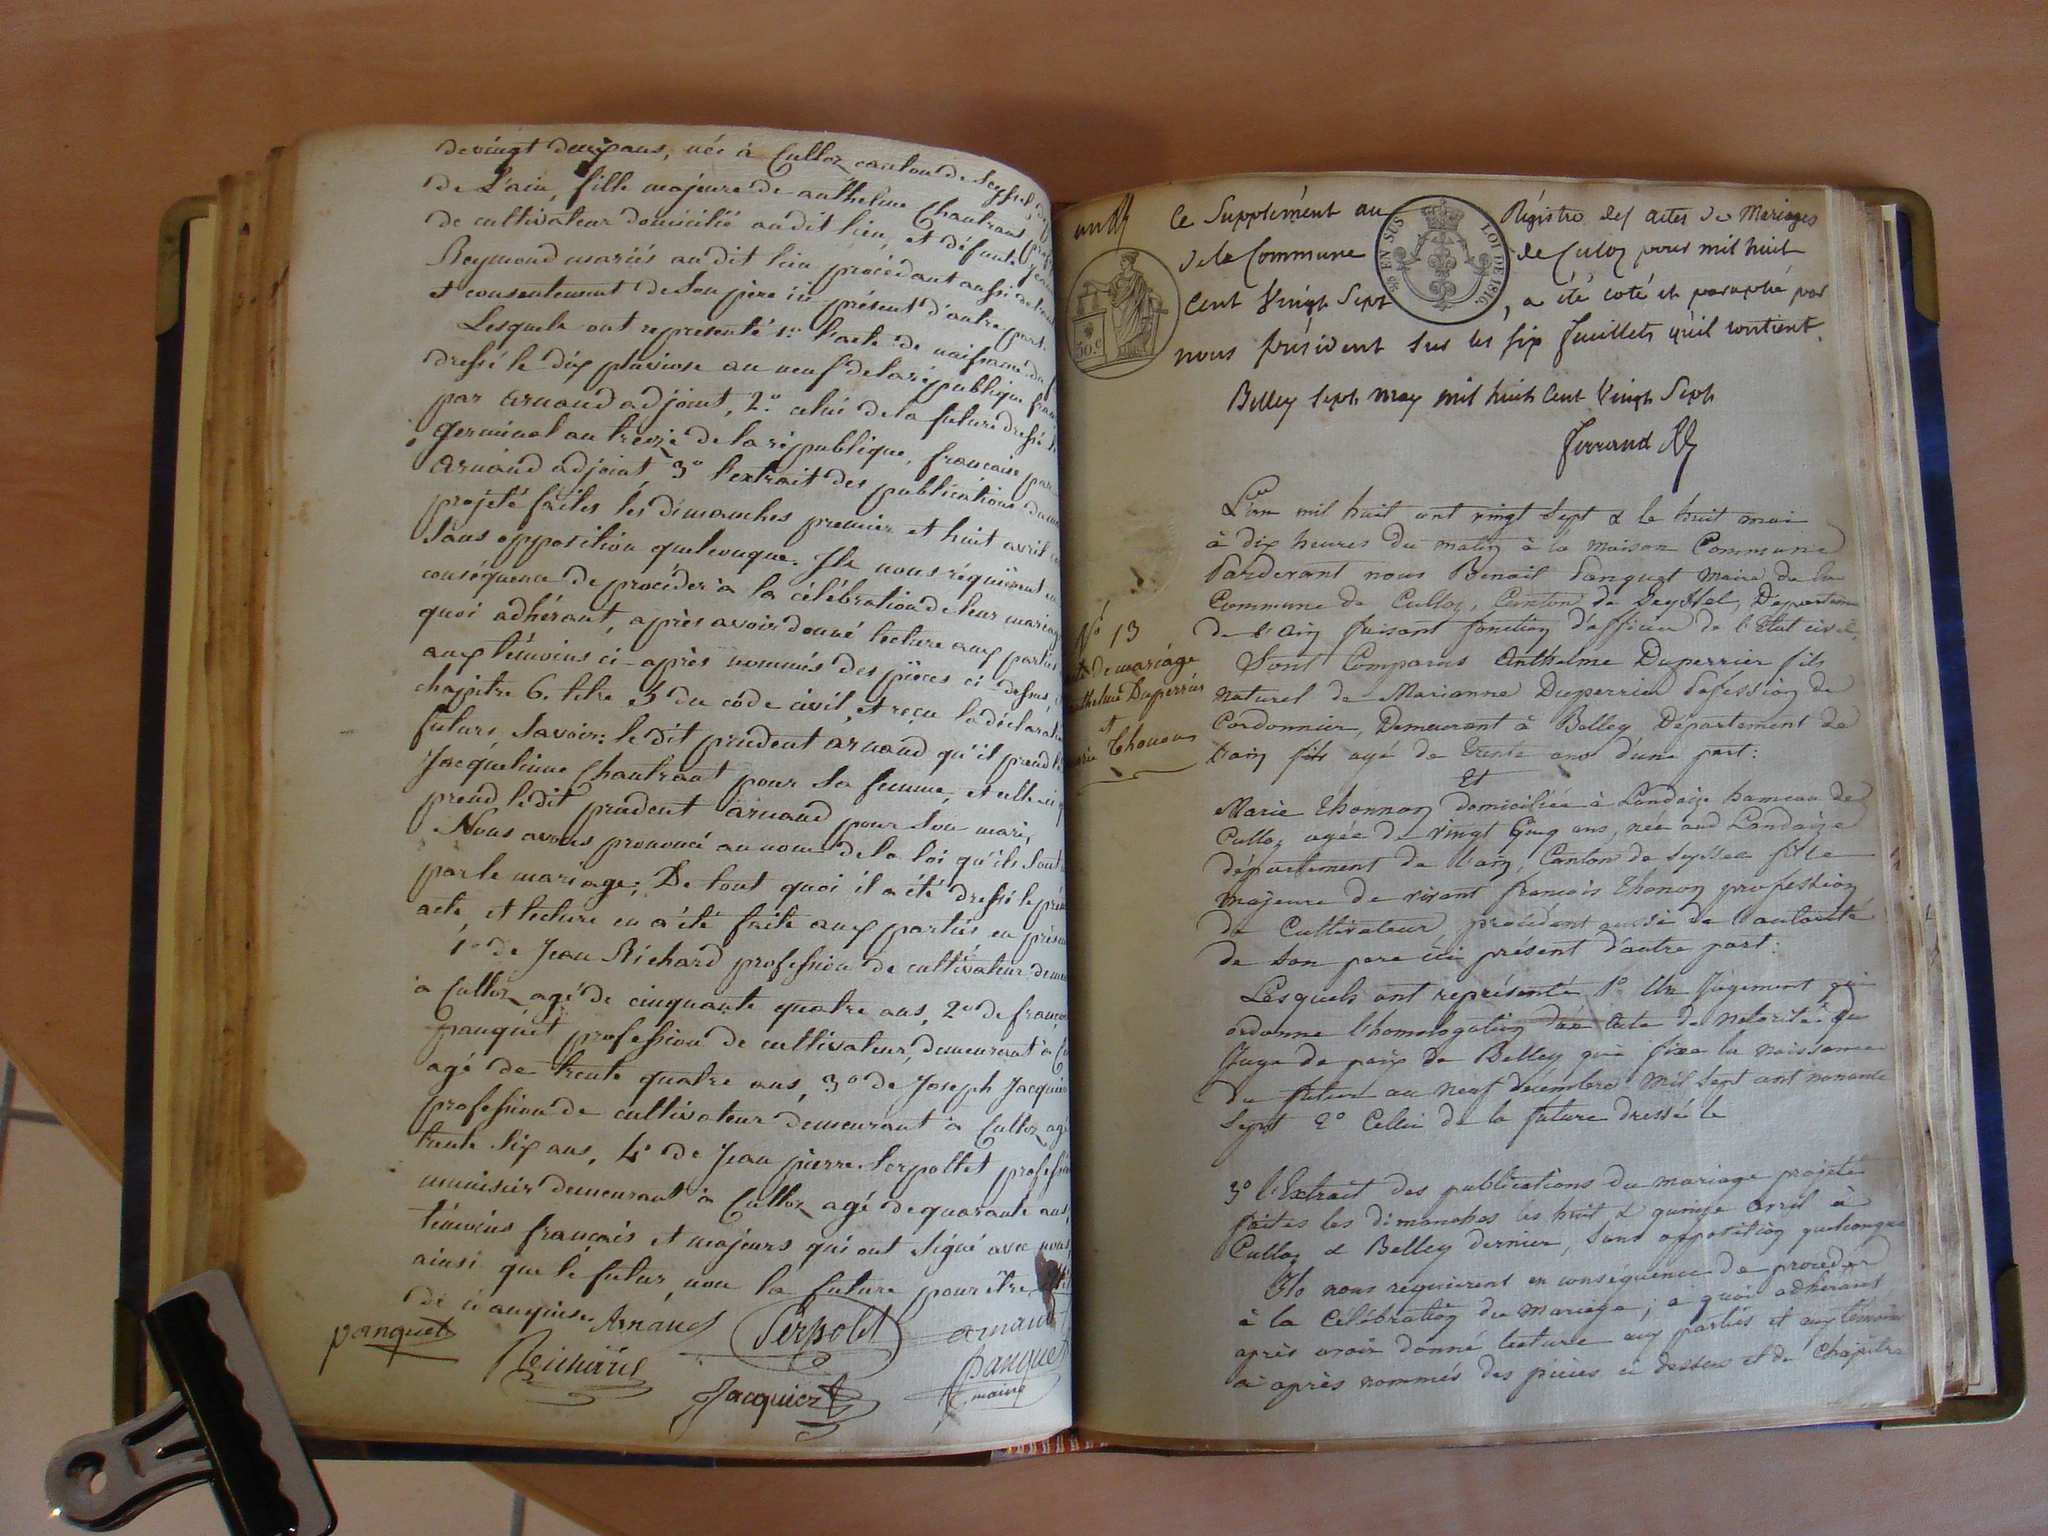 de vingt deux ans, née à Culloz canton de Seyssel, dép
de L'ain, fille majeure de anthelme Chautrans prof
de cultivateur domicilié audit lieu, et défunte
Reymond mariés audit lieu procédant aussi de
et consentement de Son père ici présent d'autre part.
Lesquels ont représenté 1° l'acte de naissance du
dressé le dix pluviose an neuf de la république fran
par Arnaud adjoint, 2° celui de la future dressé le
germinal an treize de la république française par
Arnaud adjoint, 3° l'extrait des publications du
projeté faites les dimanches premier et huit avril
Sans opposition quelconque. Ils nous réquièrent en
conséquence de procéder à la célébration de leur mariage
quoi adhérant, après avoir donné lecture aux parties
aux témoins ci-après nommés des pièces ci-dessus,
chapitre 6. titre 5 du code civil, et reçu la déclarat
futurs, Savoir: le dit prudent arnaud qu'il prend
Jacqueline Chautrant pour Sa femme, et elle-ci
prend ledit prudent arnaud pour Son mari,
Nous avons prononcé au nom de la loi qu'ils Sont
par le mariage; De tout quoi il a été dressé le prés
acte, et lecture en a été faite aux parties en présen
1° de Jean Richard profession de cultivateur demeu
à Culloz agé de cinquante quatre ans, 2° de franço
panquet profession de cultivateur, demeurant à Cu
agé de trente quatre ans, 3° de Joseph Jacquier
profession de cultivateur demeurant à Culloz agé
trente Six ans, 4° de Jean pierre Serpollet professi
menuisier demeurant à Culloz agé de quarante ans,
témoins français et majeurs qui ont Signé avec nous,
ainsi que le futur, non la future pour être
de ci enquise.
panquet Arnaud Serpolet arnaud
Richard Jacquier panquet
maire
Ce Supplément au Régistre des actes de Mariages
de la Commune de Culoz pour mil huit
Cent Vingt Sept, a été coté et paraphé par
nous président Sus les six feuillets qu'il contient.
Belley Sept may mil huit Cent Vingt Sept
Ferrand
50.c
EN SUS LOI DE 1816.
N° 13
acte de mariage
anthelme Duperrier
et
marie Thonon
L'an mil huit cent vingt Sept & le huit mai
à dix heures du matin à la maison Commune
Pardevant nous Benoit Panquet Maire de la
Commune de Culloz, Canton de Seyssel, Départem
de l'ain faisant fonction d'officier de l'Etat civil,
Sont Comparus Anthelme Duperrier fils
naturel de Marianne Duperrier Profession de
Cordonnier, Demeurant à Belley Département de
L'ain fils agé de trente ans d'une part:
Et
Marie Thonnon domiciliée à Landaize hameau de
Culloz agée de vingt Cinq ans, née aud Landaize
département de l'ain, Canton de Seyssel fille
majeure de vivant françois Thonon profession
de Cultivateur, procédant aussi de l'autorité
de son pere ici present d'autre part:
Lesquels ont représenté 1° Un Jugement qui
ordonne l'homologation d'un Acte de Notorité du
Juge de paix de Belley qui fixe la naissance
du futur au neuf décembre mil sept cent nonante
Sept 2° Celui de la future dressé le
3° l'Extrait des publications du mariage projeté
faites les dimanches les huit & quinze avril à
Culloz & Belley dernier, Sans opposition quelconque
Ils nous requierent en conséquence de proceder
à la Célébration du mariage; a quoi adhérant
après avoir donné lecture aux parties et aux témoins
ci après nommés des pièces ci dessus et du Chapitre